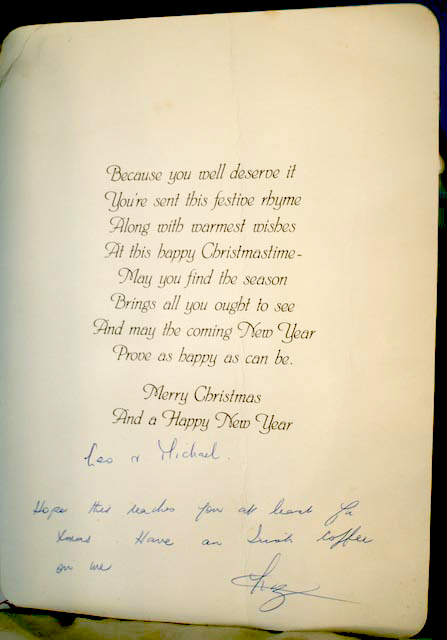 Because you well deserve it
You're sent this festive rhyme
Along with warmest wishes
At this happy Christmastime-
May you find the season
Brings all you ought to see
And may the coming New Year
Prove as happy as can be.
Merry Christmas
And a Happy New Year
Leo & Michael.
Hope this reaches you at least for
Xmas Have an Irish Coffee
on me